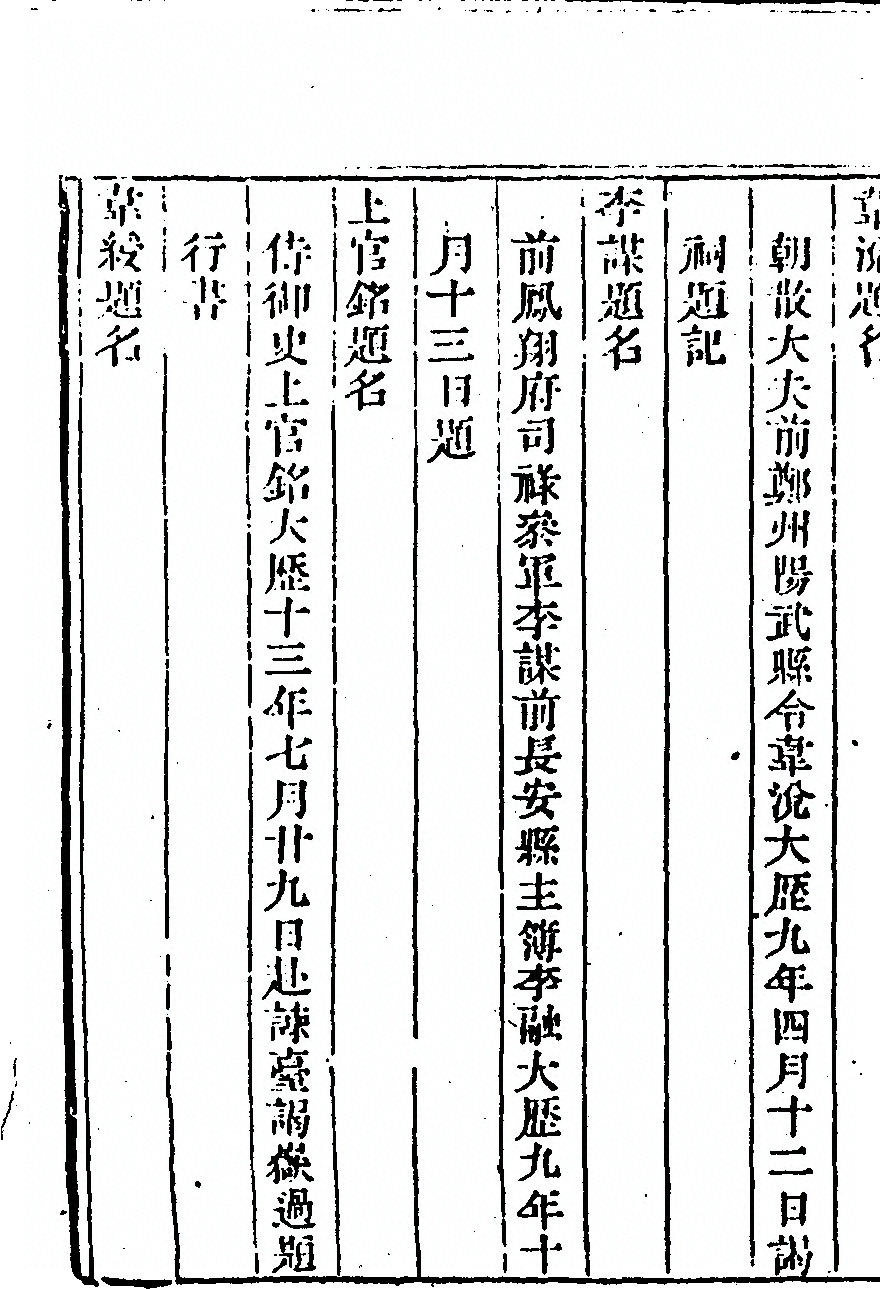 韋沇題名
朝散大夫前鄭州陽武縣令韋沇大歷九年四月十二日謁
祠題記
李謀題名
前鳳翔府司祿叅軍李謀前長安縣主簿李融大歷九年十
月十三日題
上官銘題名
侍御史上官銘大歷十三年七月廿九日赴諫臺謁嶽過題
行書
韋綬題名